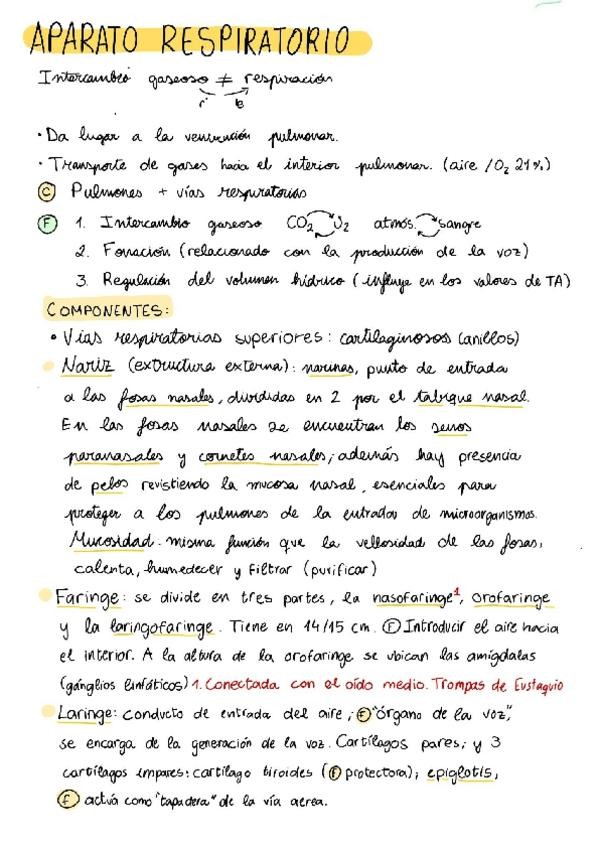 APARATO RESPIRATORIO
Intercambio gaseoso ≠ respiración
r b
· Da lugar a la ventilación pulmonar.
· Transporte de gases hacia el interior pulmonar. (aire /O2 21%)
C Pulmones + vías respiratorias
F 1. Intercambio gaseoso CO2 O2 atmós. sangre
2. Fonación (relacionado con la producción de la voz)
3. Regulación del volumen hídrico (influye en los valores de TA)
COMPONENTES:
• Vías respiratorias superiores: cartilaginosos (anillos)
Nariz (extructura externa): narinas, punto de entrada
a las fosas nasales, divididas en 2 por el tabique nasal.
En las fosas nasales se encuentran los senos
paranasales y cornetes nasales; además hay presencia
de pelos revistiendo la mucosa nasal, esenciales para
proteger a los pulmones de la entrada de microorganismos.
Mucosidad: misma función que la vellosidad de las fosas,
calenta, humedecer y filtrar (purificar)
Faringe: se divide en tres partes, la nasofaringe1, orofaringe
y la laringofaringe. Tiene en 14/15 cm. F Introducir el aire hacia
el interior. A la altura de la orofaringe se ubican las amígdalas
(gánglios linfáticos) 1. Conectada con el oído medio. Trompas de Eustaquio
Laringe: conducto de entrada del aire; F "órgano de la voz",
se encarga de la generación de la voz. Cartílagos pares; y 3
cartílagos impares: cartílago tiroides (F protectora); epiglotis,
F actúa como "tapadera" de la vía aerea.